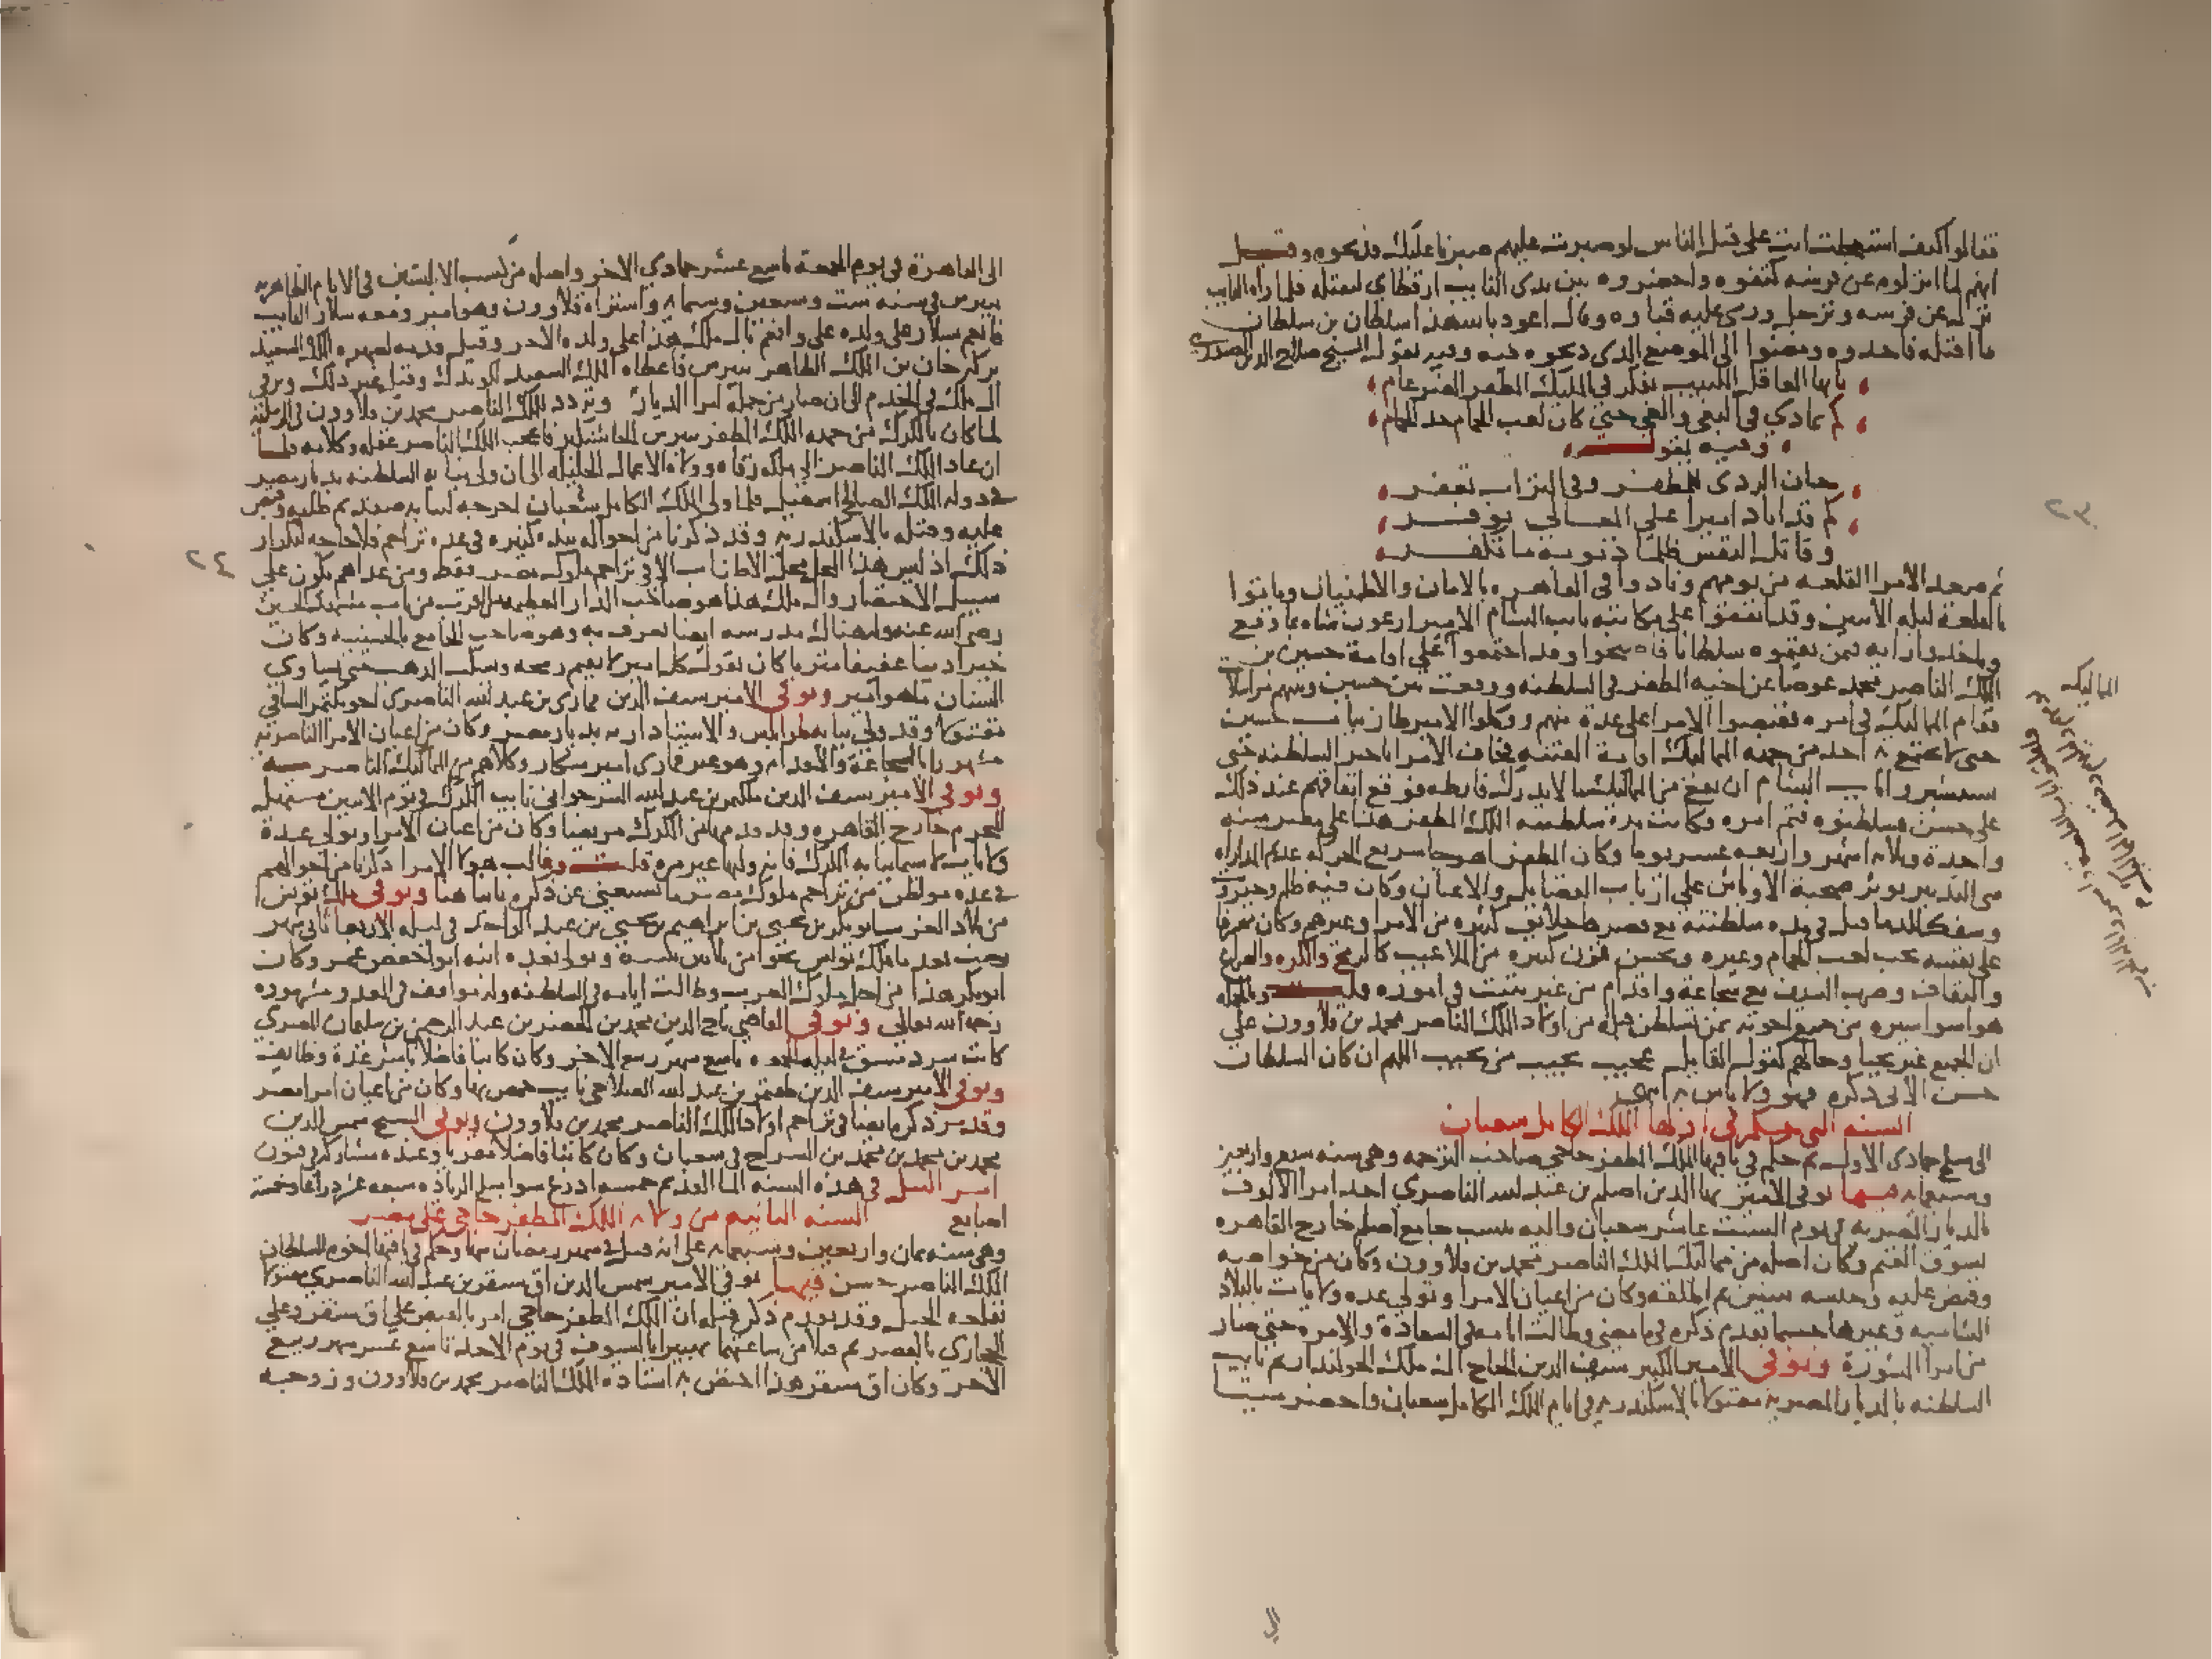 فقالوا كيف استعجلت انت على قتل الناس لو صبرت عليهم صبرنا عليك فذبحوه وقيل
انهم لما انزلوه عن فرسه كتفوه واحضروه بين يدي النايب ارقطاي ليقتله فلما رآه النايب
نزل عن فرسه وترجل ورمى عليه قباوه وقال اعوذ بالله هذا سلطان بن سلطان
ما اقتله فاخذوه ومضوا الى الموضع الذي ذبحوه فيه وفيه يقول الشيخ صلاح الدين الصفدي
ايها العاقل اللبيب تفكر في المليك المظفر الضرغام
كم تمادى في البغي والغي حتى كان لعب الحمام جد الحمام
وفيه يقول
حان الردى للمظفر وفي التراب تعفر
كم قد اباد اميرا على المعالي توفر
وقاتل النفس ظلما ذنوبه ما تكفر
ثم صعد الامرا القلعة من يومهم ونادوا في القاهره بالامان والاطمنان وباتوا
بالقلعة ليلة الاثنين وقد اتفقوا على مكاتبة نايب الشام الامير ارغون شاه بما وقع
وياخذوا رايه فيمن يقيموه سلطانا فاصبحوا وقد اجتمعوا على اقامة حسين بن
الملك الناصر محمد عوضا عن اخيه المظفر في السلطنه ووقعت بين حسين وبينهم مراسلات
فقام المماليك في امره فقبضوا الامرا على عدة منهم ووكلوا الامير طاز بباب حسين
حتى لا يجتمع به احد من جهة المماليك
على حسن فسلطنوه فتم امره وكانت مدة سلطنة الملك المظفر هذا على مصر سنه
واحدة وثلاثه اشهر واربعه عشر يوما وكان المظفر اهوجا سريع الحركه عديم المداراه
سيئ التدبير يوثر صحبة الاوباش على ارباب الفضايل والاعيان وكان فيه ظلم وجبروت
وسفك للدما قتل في مدة سلطنته مع قصرها خلايق كثيره من الامرا وغيرهم وكان مسرفا
على نفسه يحب لعب الحمام وغيره ويحسن فنون كثيره من الملاعيب كالرمح والكره والصراع
والثقاف وضرب السيف مع شجاعة واقدام من غير تثبت في اموره قلت وبالجمله
هو اسوا سيره من جميع اخوته ممن تسلطن قبله من اولاد الملك الناصر محمد بن قلاوون على
ان الجميع غير نجبا وحالهم كقول القايل عجيب نجيب من نجيب اللهم ان كان السلطان
حسن الاتي ذكره فهو ولا باس به انتهى
السنه التي حكم في اولها الملك الكامل شعبان
الى سلخ جمادى الاولى ثم حكم في باقيها الملك المظفر حاجي صاحب الترجمه وهي سنه سبع واربعين
وسبعمايه فيها توفي الامير بها الدين اصلم بن عبد الله الناصري احد امرا الالوف
بالديار المصريه في يوم السبت عاشر شعبان واليه ينسب جامع اصلم خارج القاهره
بسوق الغنم وكان اصله من مماليك الملك الناصر محمد بن قلاوون وكان من خواصه
وقبض عليه وحبسه سنين ثم اطلقه وكان من اعيان الامرا وتولى عده ولايات بالبلاد
الشاميه وغيرها حسبما تقدم ذكره في ما مضى وطالت ايامه في السعادة والامره حتى صار
من امرا المشورة وتوفي الامير الكبير سيف الدين الحاج ال ملك الجوكندار ثم نايب
السلطنه بالديار المصريه مقتولا بالاسكندريه في ايام الملك الكامل شعبان واحضر ميتا
الى القاهرة في يوم الجمعة تاسع عشر جمادى الاخر واصله من كسب الابلستين في الايام الظاهريه
بيبرس في سنه ست وسبعين وستمايه واشتراه قلاوون وهو امير ومعه سلار النايب
فانعم بسلار على ولده علي وانعم بال ملك هذا على ولده الاخر وقيل قدمه لصهره الملك السعيد
بركه خان بن الملك الظاهر بيبرس فاعطاه الملك السعيد لكوندك وقيل غير ذلك وترقى
ال ملك في الخدم الى ان صار من جمله امرا الديار وتردد للملك الناصر محمد بن قلاوون في الرسلية
لما كان بالكرك من جهه الملك المظفر بيبرس الجاشنكير فاعجب الملك الناصر عقله وكلامه فلما
ان عاد الملك الناصر الى ملكه رقاه وولاه الاعمال الجليله الى ان ولي نيابه السلطنه بديار مصر
في دوله الملك الصالح اسمعيل فلما ولي الملك الكامل شعبان اخرجه لنيابه صفد ثم طلبه وقبض
عليه وقتله بالاسكندريه وقد ذكرنا من احواله نبذه كثيره في عده تراجم فلا حاجه لتكرار
ذلك اذ ليس هذا المحل محل الاطناب الا في تراجم ملوك مصر فقط ومن عداهم يكون على
سبيل الاختصار وال ملك هذا هو صاحب الدار العظيمه بالقرب من باب مشهد الحسين
رضي الله عنه وله هناك مدرسه ايضا تعرف به وهو صاحب الجامع بالحسينيه وكان
خيرا دينا عفيفا مثريا كان يقول كل امير لا يقيم رمحه ويسكب الذهب حتى يساوي
السنان ما هو امير وتوفي الامير سيف الدين قماري بن عبد الله الناصري اخو بكتمر الساقي
مقتولا وقد ولي نيابه طرابلس والاستادارية بديار مصر وكان من اعيان الامرا الناصريه
مشهورا بالشجاعة والاقدام وهو غير قماري امير شكار وكلاهم من المماليك الناصريه
وتوفي الامير سيف الدين ملكتمر بن عبد الله السرجواني نايب الكرك في يوم الاثنين مستهل
المحرم خارج القاهره وقد قدم من الكرك مريضا وكان من اعيان الامرا وتولى عدة
ولايات لا سيما نيابه الكرك فانه وليها غير مره قلت وغالب هولا الامرا ذكرنا من احوالهم
في عده مواطن من تراجم ملوك مصر ما يستغنى عن ذكره ثانيا هنا وتوفي ملك تونس
من بلاد الغرب ابو بكر بن يحيى بن ابراهيم بن يحيى بن عبد الواحد في ليله الاربعا ثاني شهر
رجب بعد ما ملك تونس نحوا من ثلاثين سنة وتولى بعده ابنه ابو حفص عمر وكان
ابو بكر هذا من اجل ملوك الغرب وطالت ايامه في السلطنه وله مواقف في العدو مشهوره
رحمه الله تعالى وتوفي القاضي تاج الدين محمد بن الخضر بن عبد الرحمن بن سليمان المصري
كاتب سر دمشق في ليله الجمعه تاسع شهر ربيع الاخر وكان كاتبا فاضلا باشر عدة وظايف
وتوفي الامير سيف الدين طقتمر بن عبد الله الصلاحي نايب حمص بها وكان من اعيان امرا مصر
وقد مر ذكره ايضا في تراجم اولاد الملك الناصر محمد بن قلاوون وتوفي الشيخ شمس الدين
محمد بن محمد بن محمد بن السراج في شعبان وكان كاتبا فاضلا مقريا وعنده مشاركه في فنون
امر النيل في هذه السنه الما القديم خمسه اذرع سوا مبلغ الزياده سبعه عشر ذراعا وخمسة
اصابع السنه الثانيه من ولايه الملك المظفر حاجي على مصر
وهي سنه ثمان واربعين وسبعمايه على انه قتل في شهر رمضان منها وحكم في باقيها اخوه السلطان
الملك الناصر حسن فيها توفي الامير شمس الدين اق سنقر بن عبد الله الناصري مقتولا
بقلعه الجبل وقد تقدم ذكر قتله ان الملك المظفر حاجي امر بالقبض على اق سنقر وعلى
الحجازي بالقصر ثم قتلا من ساعتهما تهبيرا بالسيوف في يوم الاحد تاسع عشر شهر ربيع
الاخر وكان اق سنقر هذا اختص به استاذه الملك الناصر محمد بن قلاوون وزوجه